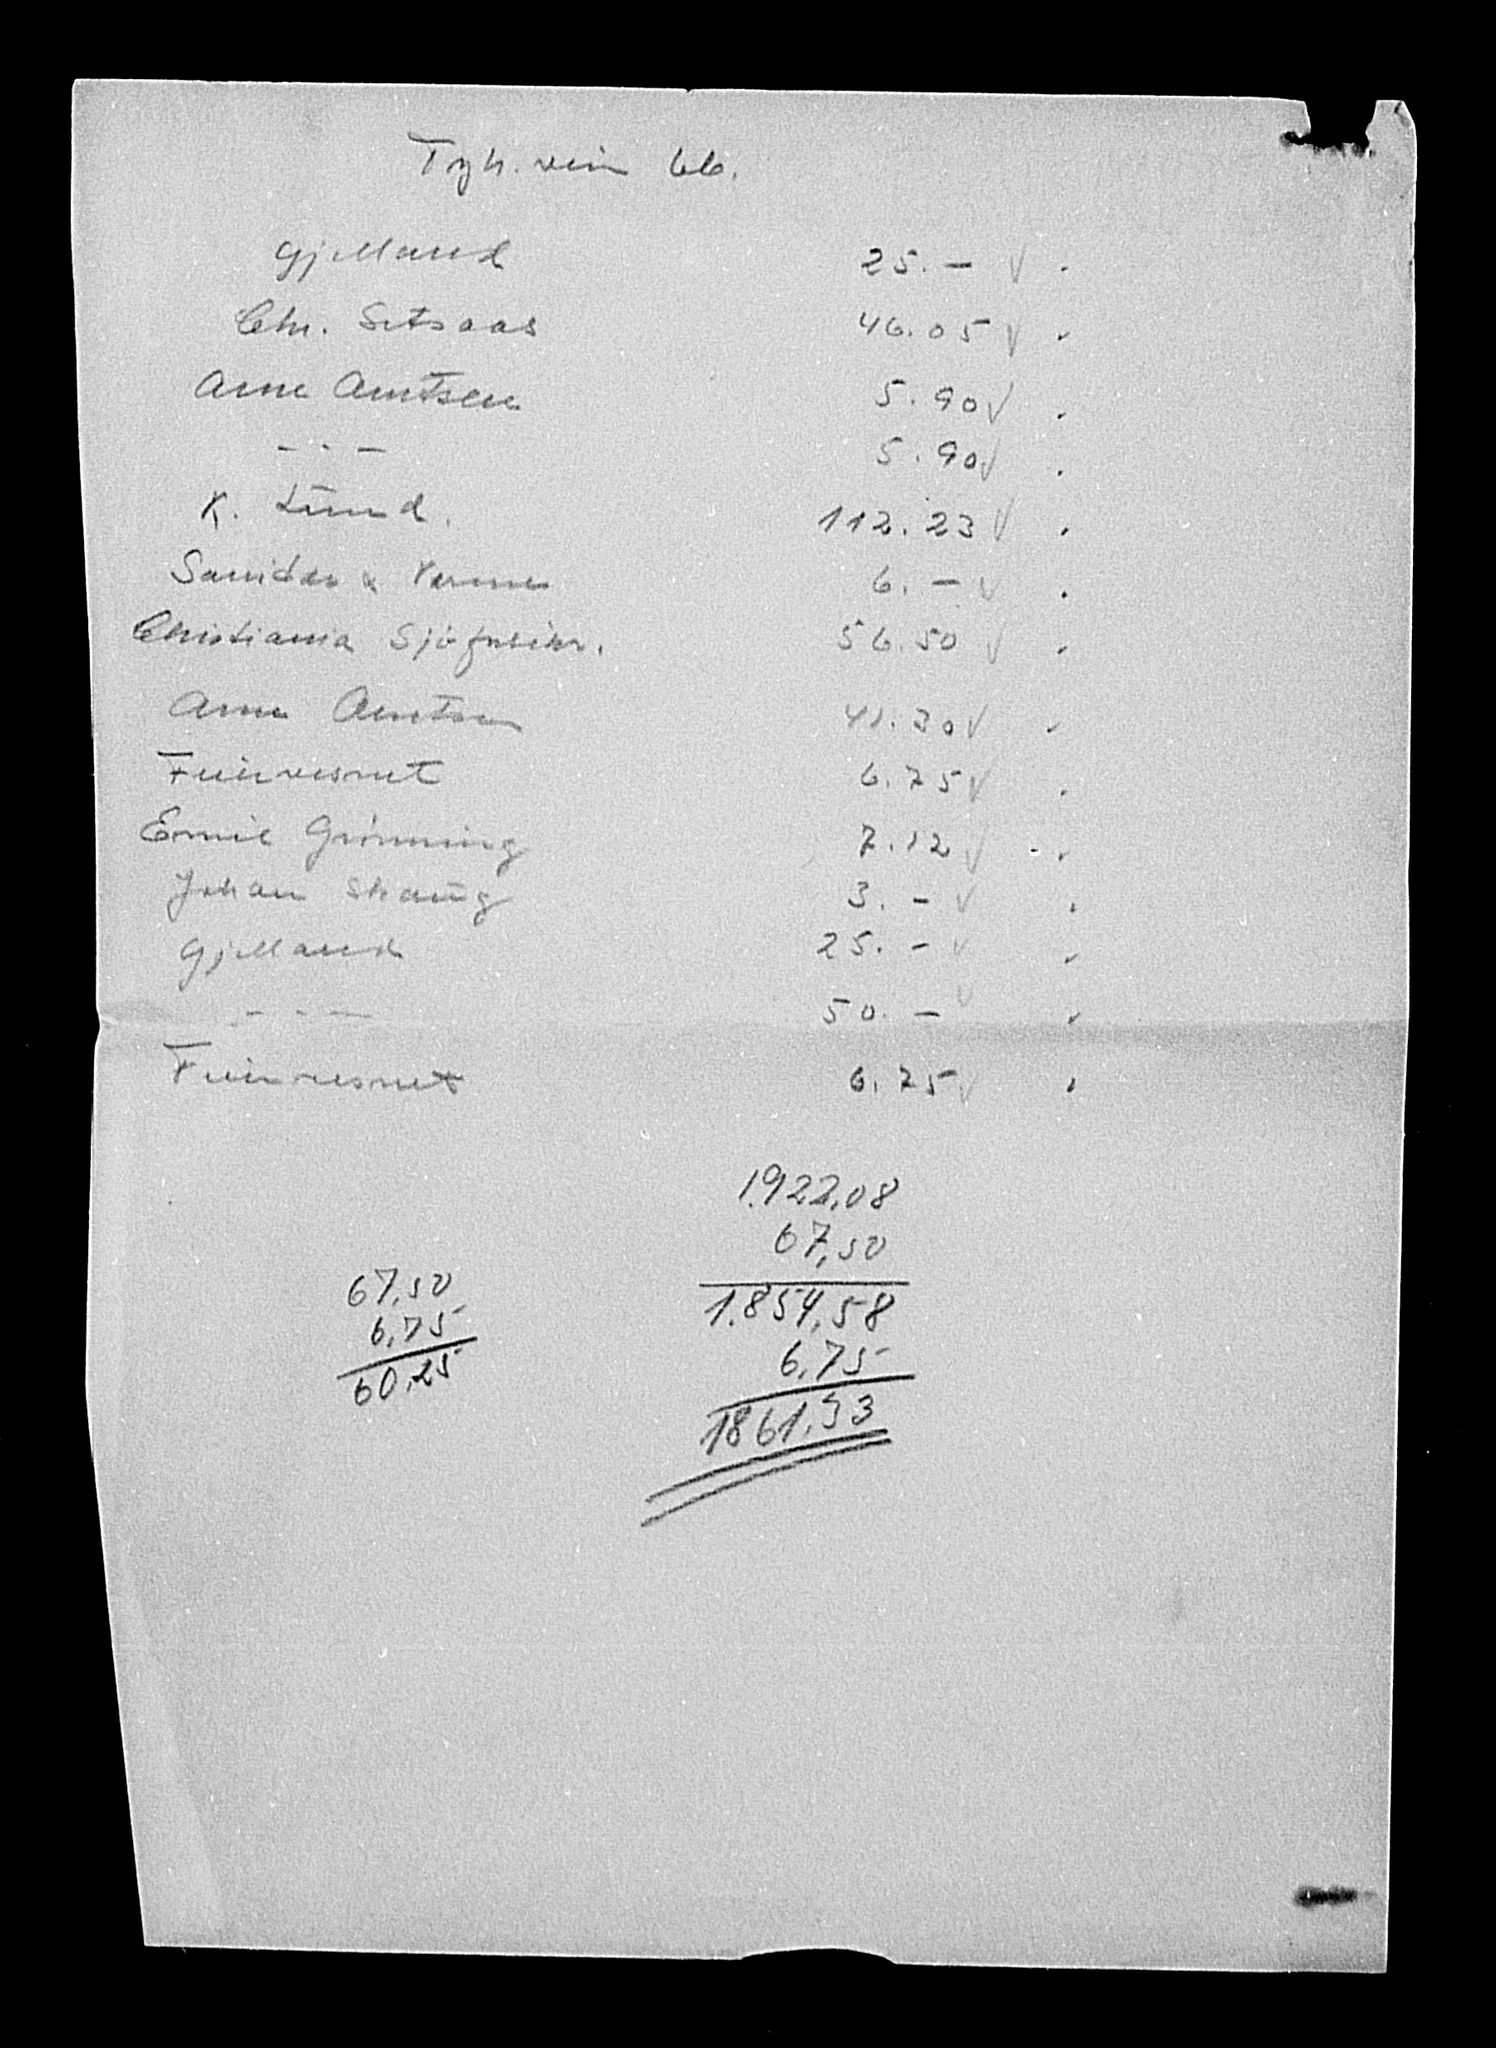 Tryh. vein 66.
Gjelland 25.— √
Chr. Setsaas 46.05 √
Arne Arntsen 5.90 √
— . — 5.90 √
K. Lund. 112.23 √
Sanitær & Varme 6.— √
Christiania Sjöforsikr. 56.50 √
Arne Arntsen 41.30 √
Feiervesenet 6.75 √
Emil Grönning 7.12 √
Johan Skaug 3.— √
Gjelland 25.— √
— . — 50.— √
Feiervesenet 6.75 √
1.922,08
67,50
1.854,58
6,75
1861,33
67,50
6,75
60,25